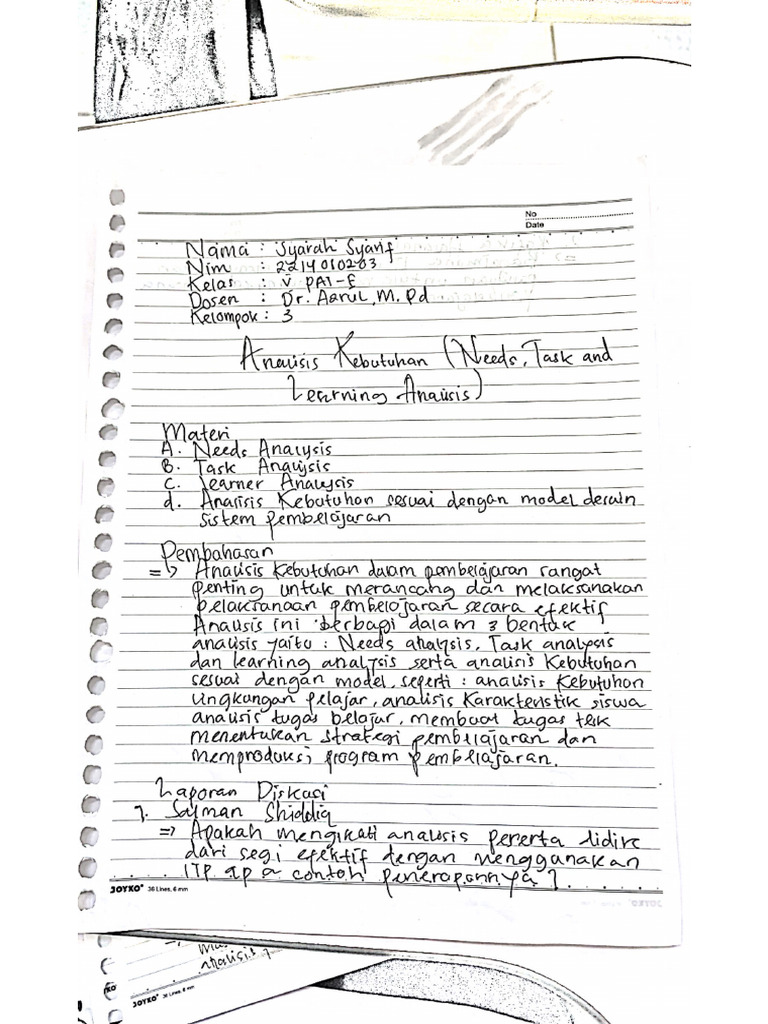 No
Date
Nama : Syarah Syarif
Nim : 2214010203
Kelas : V PAI-E
Dosen : Dr. Aarul, M.Pd
Kelompok : 3
Analisis Kebutuhan (Needs, Task and
Learning Analisis)
Materi
A. Needs Analysis
B. Task Analysis
C. Learner Analysis
d. Analisis Kebutuhan sesuai dengan model desain
sistem pembelajaran
Pembahasan
=> Analisis Kebutuhan dalam pembelajaran sangat
penting untuk merancang dan melaksanakan
pelaksanaan pembelajaran secara efektif
Analisis ini berbagi dalam 3 bentuk
analisis yaitu : Needs analysis, Task analysis
dan learning analysis serta analisis Kebutuhan
sesuai dengan model, seperti : analisis Kebutuhan
lingkungan pelajar, analisis Karakteristik siswa
analisis tugas belajar, membuat tugas tesk
menentukan strategi pembelajaran dan
memproduksi program pembelajaran.
Laporan Diskusi
1. Salman Shiddiq
=> Apakah mengikati analisis peserta didik
dari segi efektif dengan menggunakan
ITP ap a contoh penerapannya?
JOYKO 36 Lines, 6 mm
analisis
JOYKO 36 Lines, 6 mm